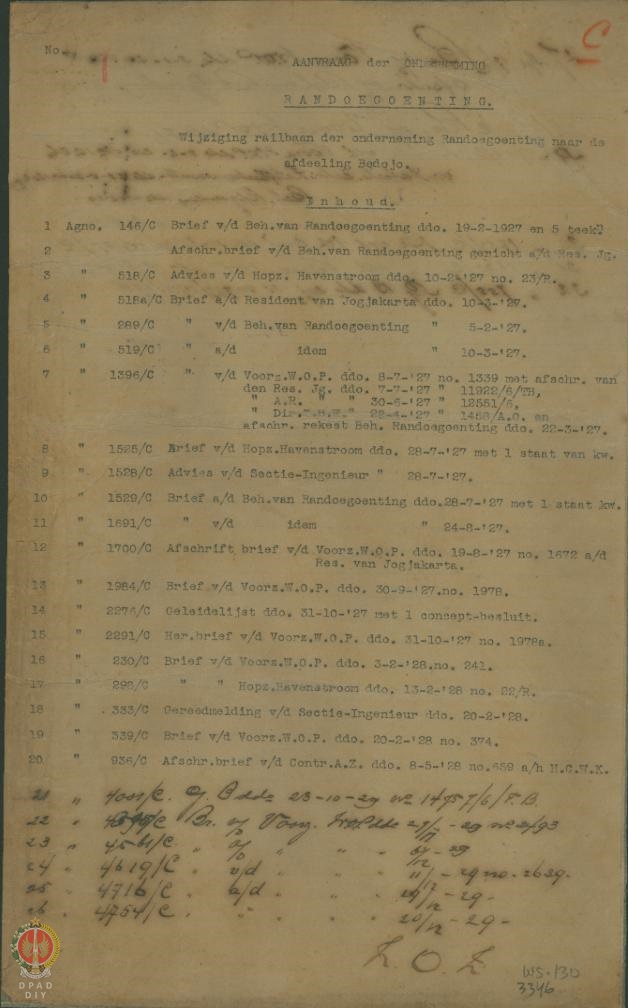 No.
AANVRAAG der ONDERNEMING
RANDOEGOENTING.
Wijziging railbaan der onderneming Randoegoenting naar de
afdeeling Bedojo.
Inhoud.
1 Agno. 146/C Brief v/d Beh.van Randoegoenting ddo. 19-2-1927 en 5 teek.
2 Afschr.brief v/d Beh.van Randoegoenting gericht a/d Res. Jg.
3 " 518/C Advies v/d Hopz. Havenstroom ddo. 10-2-'27 no. 23/R.
4 " 518a/C Brief a/d Resident van Jogjakarta ddo. 10-3-'27.
5 " 289/C " v/d Beh.van Randoegoenting " 5-2-'27.
6 " 519/C " a/d idem " 10-3-'27.
7 " 1396/C " v/d Voorz.W.O.P. ddo. 8-7-'27 no. 1339 met afschr. van
den Res. Jg. ddo. 7-7-'27 " 11922/6/TB,
" A.R. " " 30-6-'27 " 12551/6.
" Dir.I.B.W." 22-4-'27 " 1458/A.O. en
afschr. rekest Beh. Randoegoenting ddo. 22-3-'27.
8 " 1525/C Brief v/d Hopz.Havenstroom ddo. 28-7-'27 met 1 staat van kw.
9 " 1528/C Advies v/d Sectie-Ingenieur " 28-7-'27.
10 " 1529/C Brief a/d Beh.van Randoegoenting ddo.28-7-'27 met 1 staat kw.
11 " 1691/C " v/d idem " 24-8-'27.
12 " 1700/C Afschrift brief v/d Voorz.W.O.P. ddo. 19-8-'27 no. 1672 a/d
Res. van Jogjakarta.
13 " 1984/C Brief v/d Voorz.W.O.P. ddo. 30-9-'27.no. 1978.
14 " 2276/C Geleidelijst ddo. 31-10-'27 met 1 concept-besluit.
15 " 2291/C Her.brief v/d Voorz.W.O.P. ddo. 31-10-'27 no. 1978a.
16 " 230/C Brief v/d Voorz.W.O.P. ddo. 3-2-'28.no. 241.
17 " 298/C " " Hopz.Havenstroom ddo. 13-2-'28 no. 22/R.
18 " 333/C Gereedmelding v/d Sectie-Ingenieur ddo. 20-2-'28.
19 " 339/C Brief v/d Voorz.W.O.P. ddo. 20-2-'28 no. 374.
20 " 936/C Afschr.brief v/d Contr.A.Z. ddo. 8-5-'28 no.659 a/h H.C.W.K.
21 " 4001/C. G. B ddo 23-10-29 no 14757/6/T.B.
22 " Br. v/d Voorz.
23 " 4561/C
24 " 4619/C " v/d " " " - 29 no. 2639.
25 " 4716/C " a/d " " " - 29 -
26 " 4754/C " " " " 20/12 - 29 -
Z. O. Z
WS.130
3346
DPAD
DIY